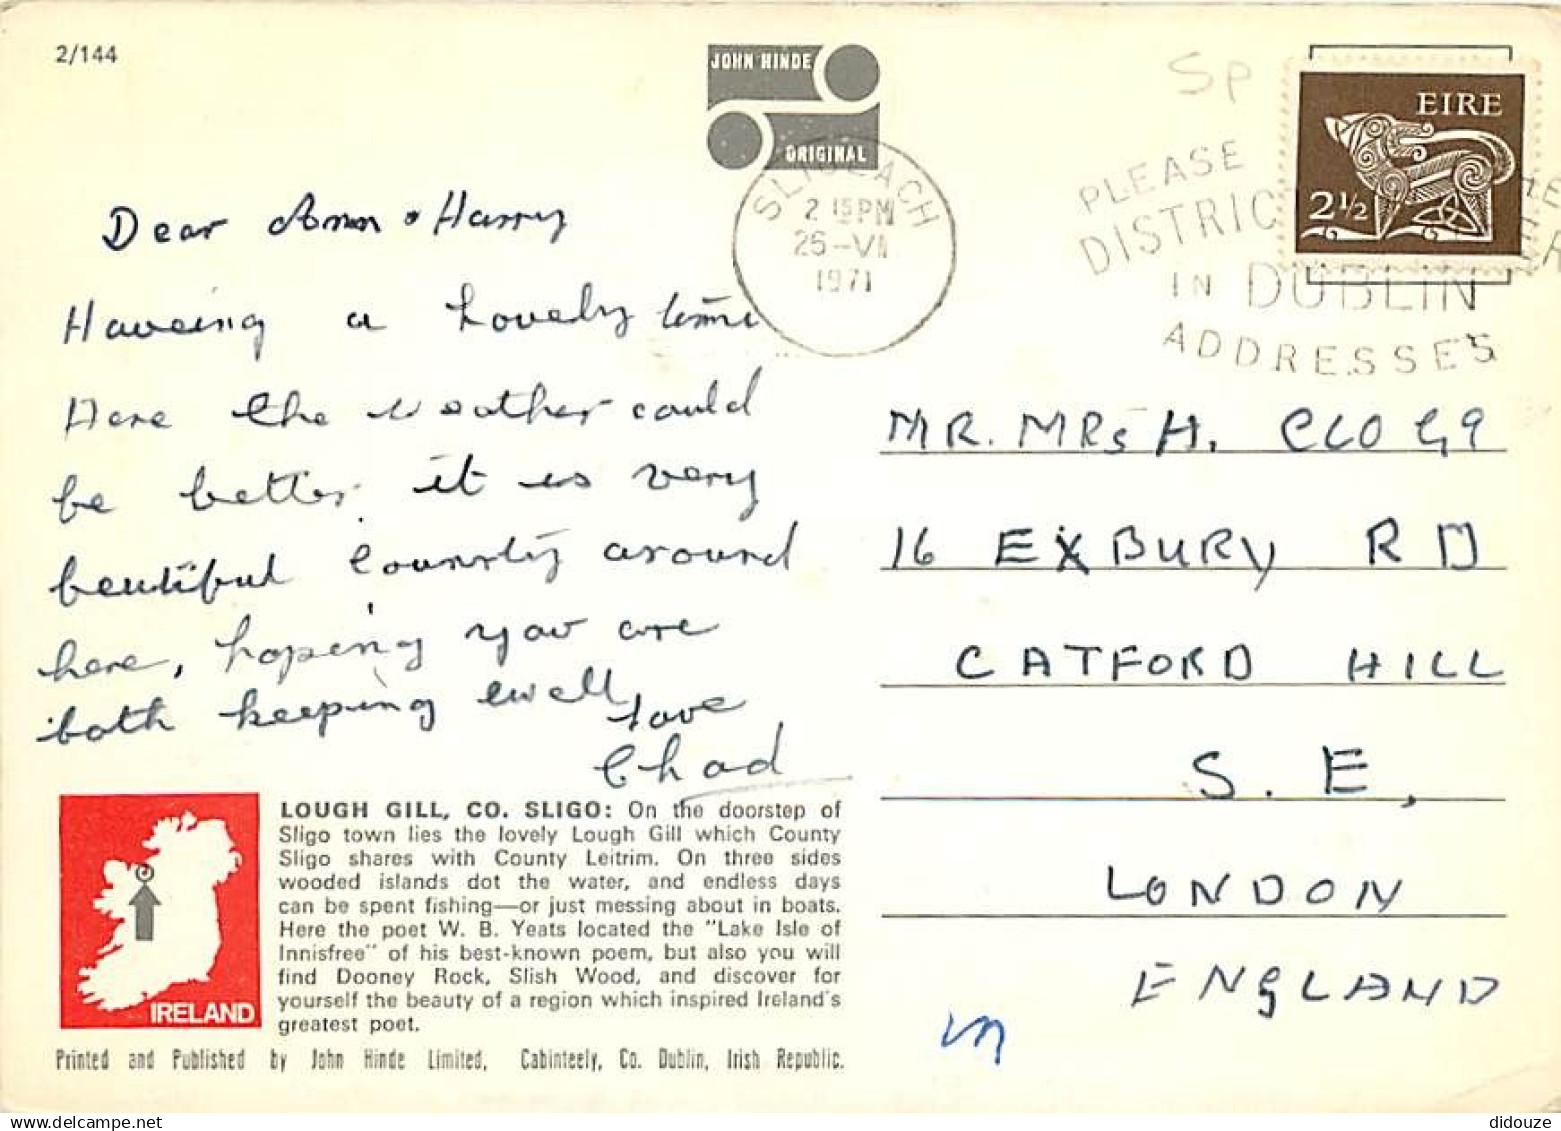 2/144
JOHN HINDE
ORIGINAL
Sp
EIRE
2½
SLIGEACH
2 15PM
26-VII
1971
PLEASE
DISTRICT
IN DUBLIN
ADDRESSES
Dear Ann + Harry
Haveing a Lovely time
Here the weather could
be better, it is very
beutiful Country around
here, hoping you are
both keeping well
love
Chad
MR. MRS H. CLOGG
16 EXBURY RD
CATFORD HILL
S. E,
LONDON
ENGLAND
IRELAND
LOUGH GILL, CO. SLIGO: On the doorstep of
Sligo town lies the lovely Lough Gill which County
Sligo shares with County Leitrim. On three sides
wooded islands dot the water, and endless days
can be spent fishing—or just messing about in boats.
Here the poet W. B. Yeats located the "Lake Isle of
Innisfree" of his best-known poem, but also you will
find Dooney Rock, Slish Wood, and discover for
yourself the beauty of a region which inspired Ireland's
greatest poet.
Printed and Published by John Hinde Limited, Cabinteely, Co. Dublin, Irish Republic.
didouze